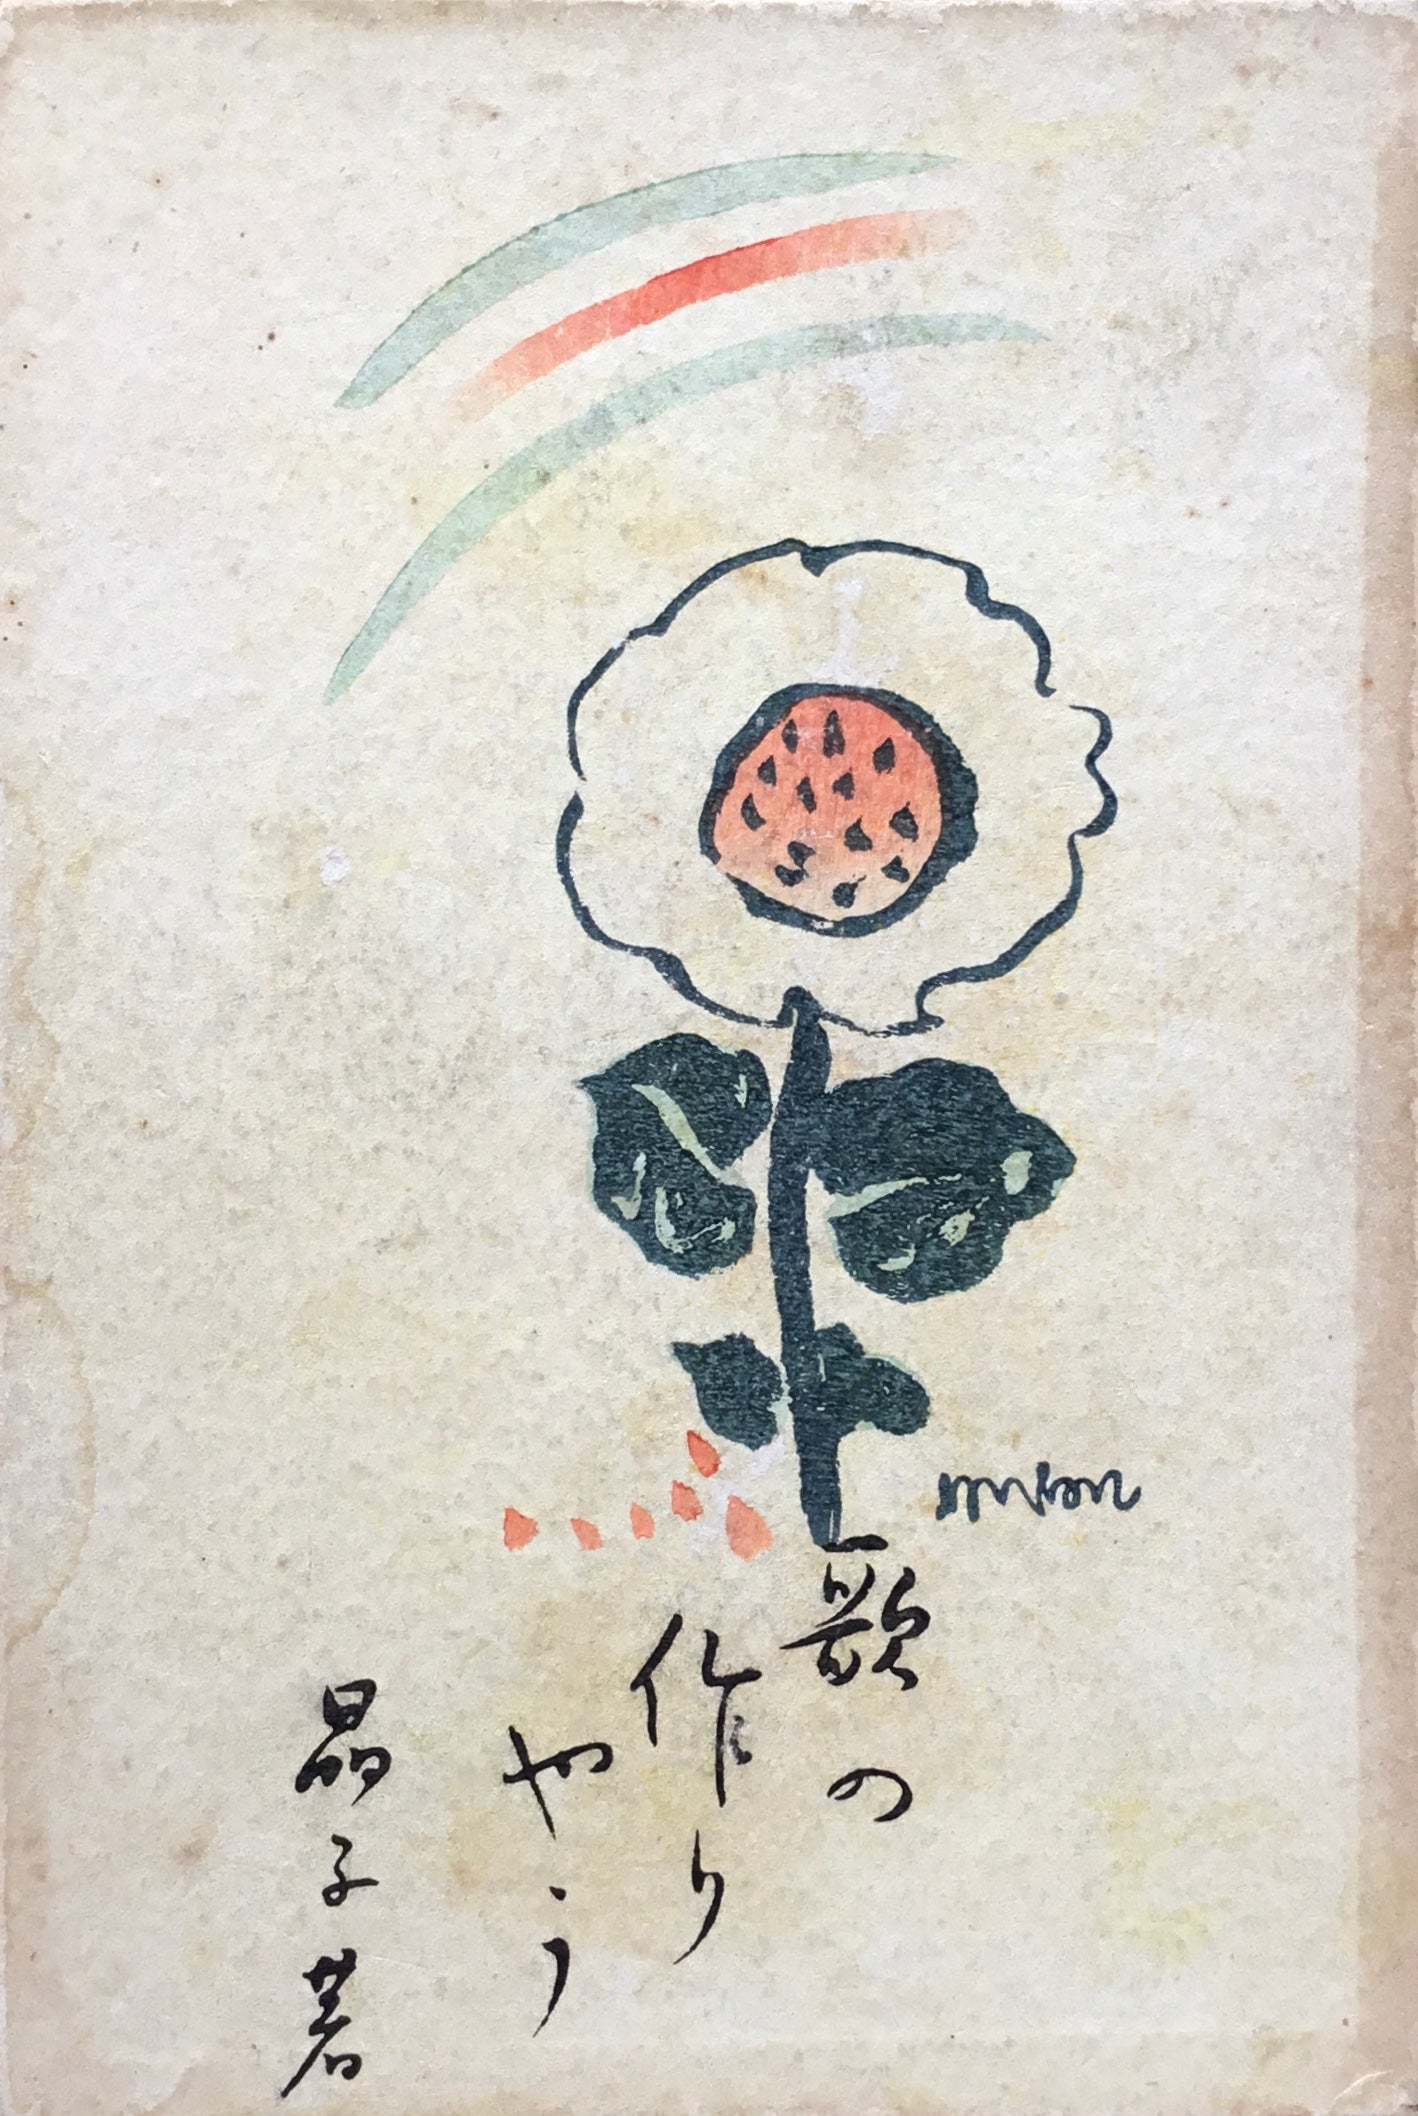 歌の
作り
やう
晶子著